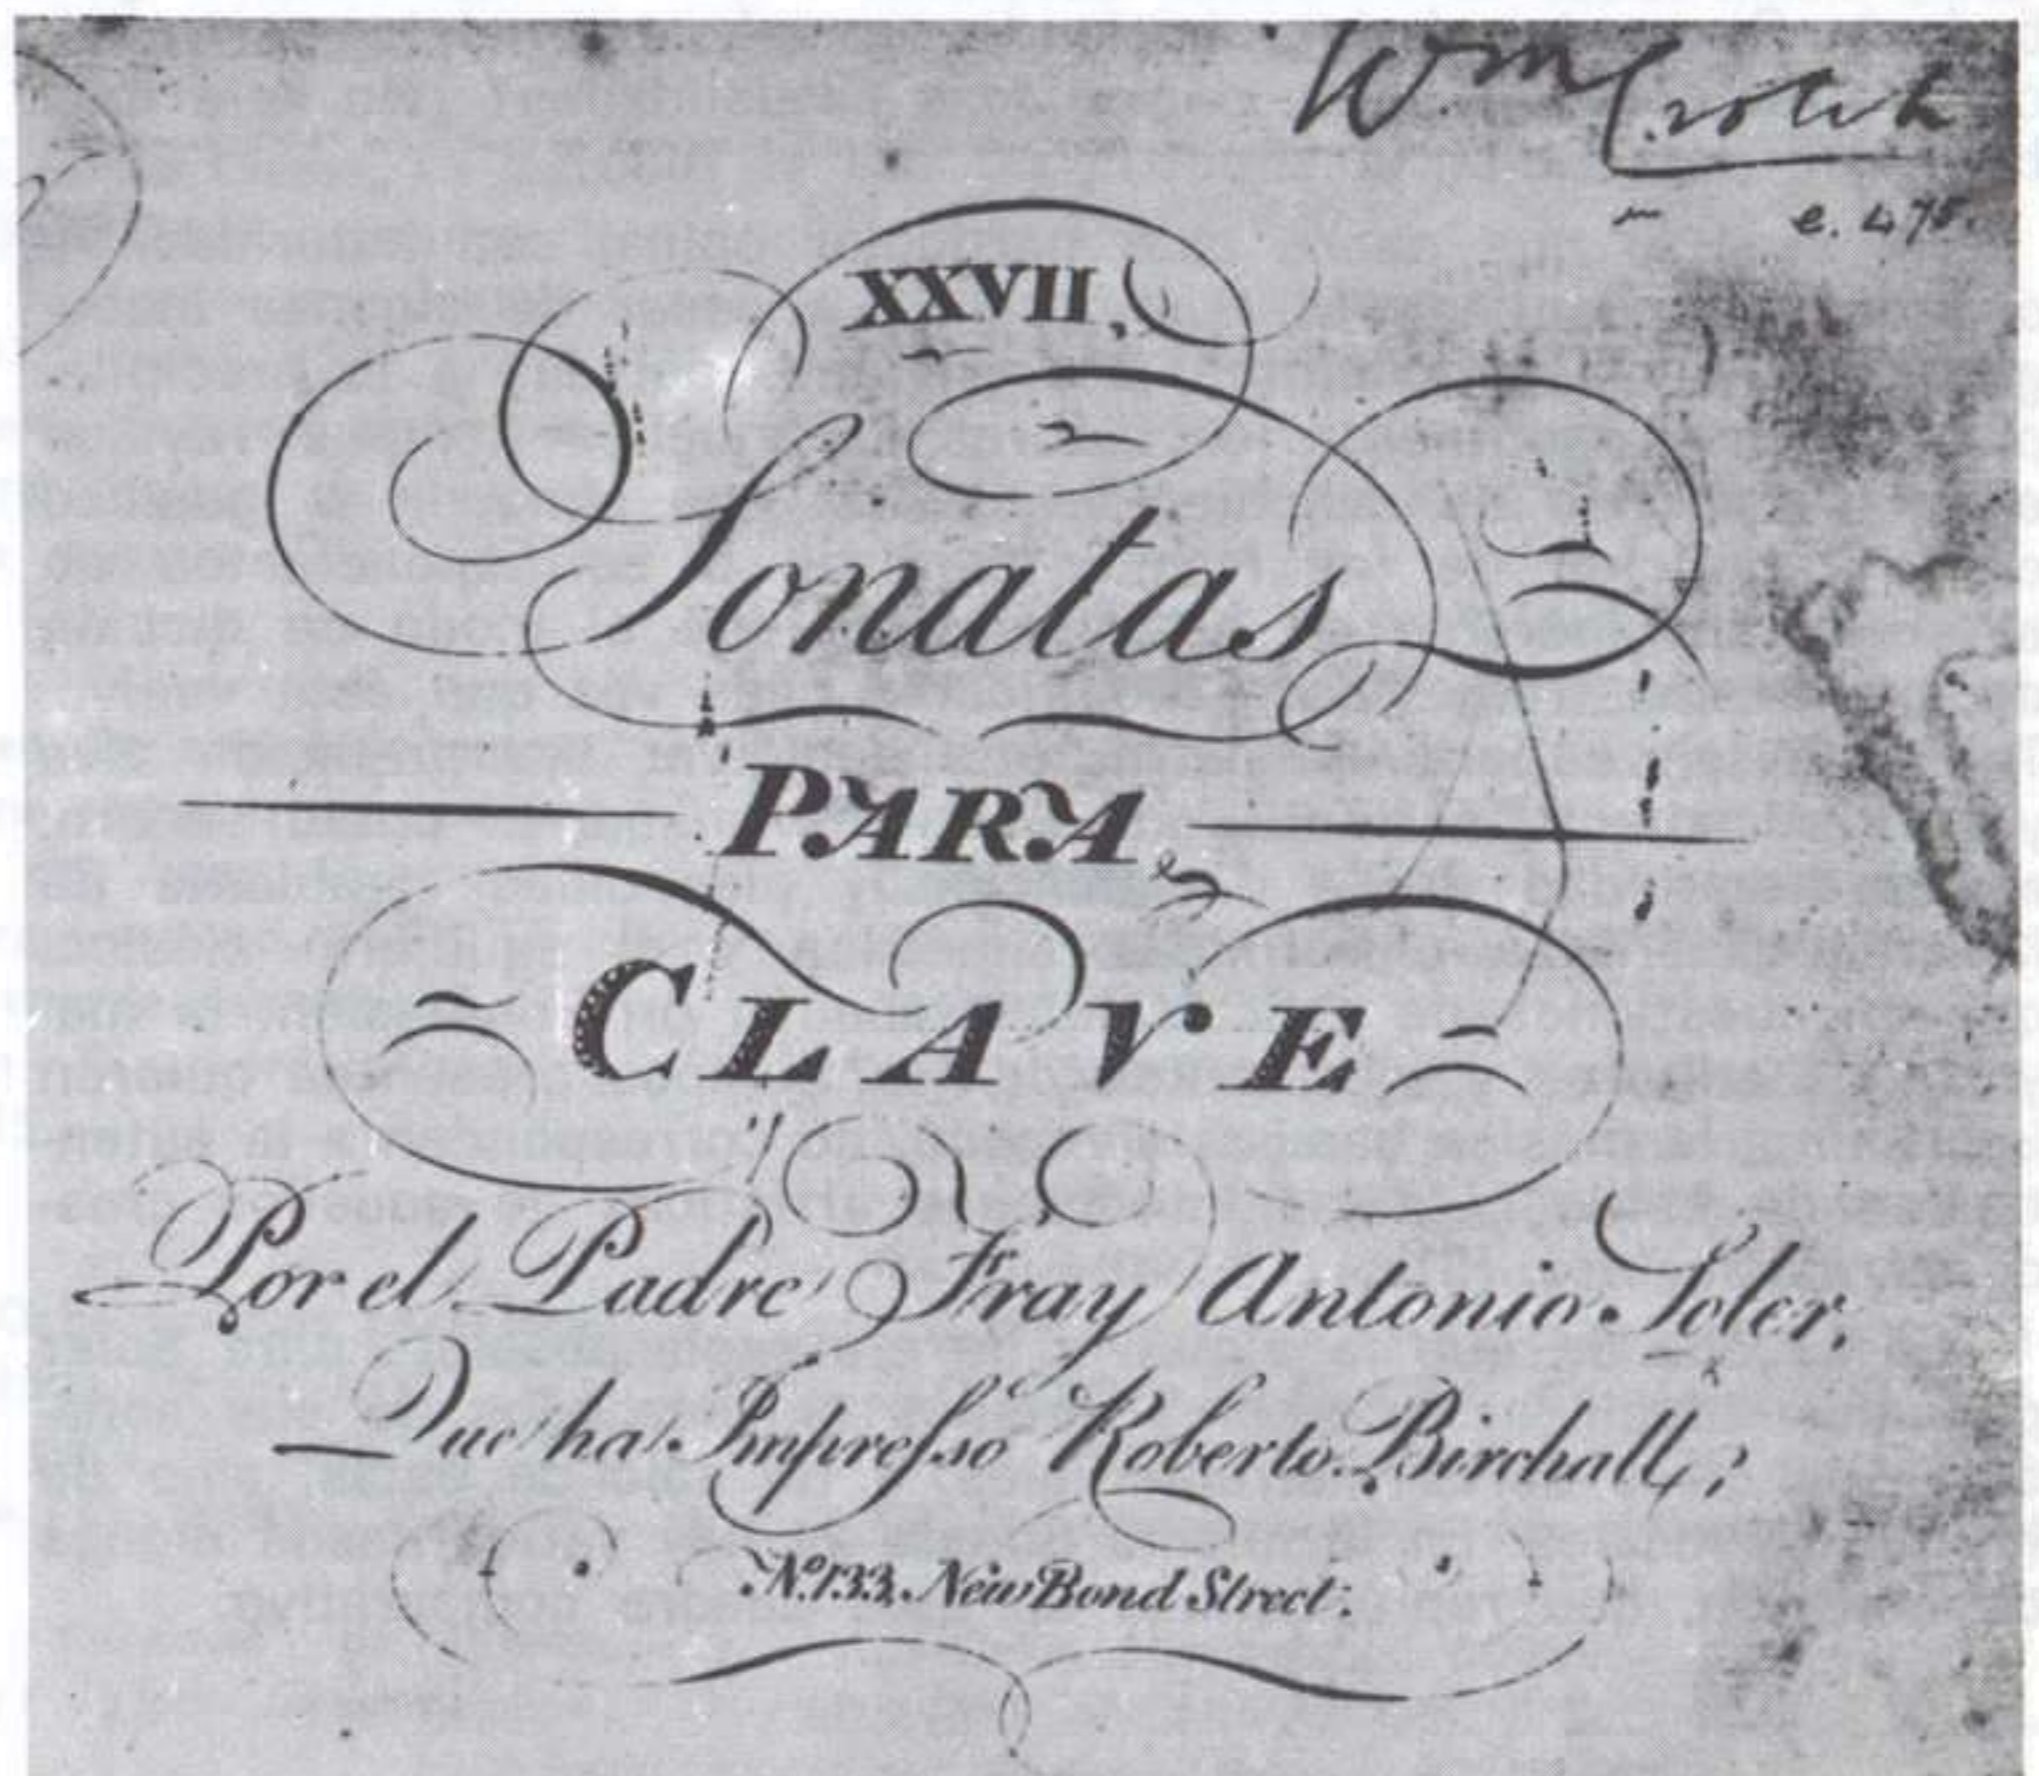 Wm Crotch
e. 475.
XXVII,
Sonatas
PARA
CLAVE
Por el Padre Fray Antonio Soler,
Que ha Impresso Roberto Birchall,
No. 133, New Bond Street.